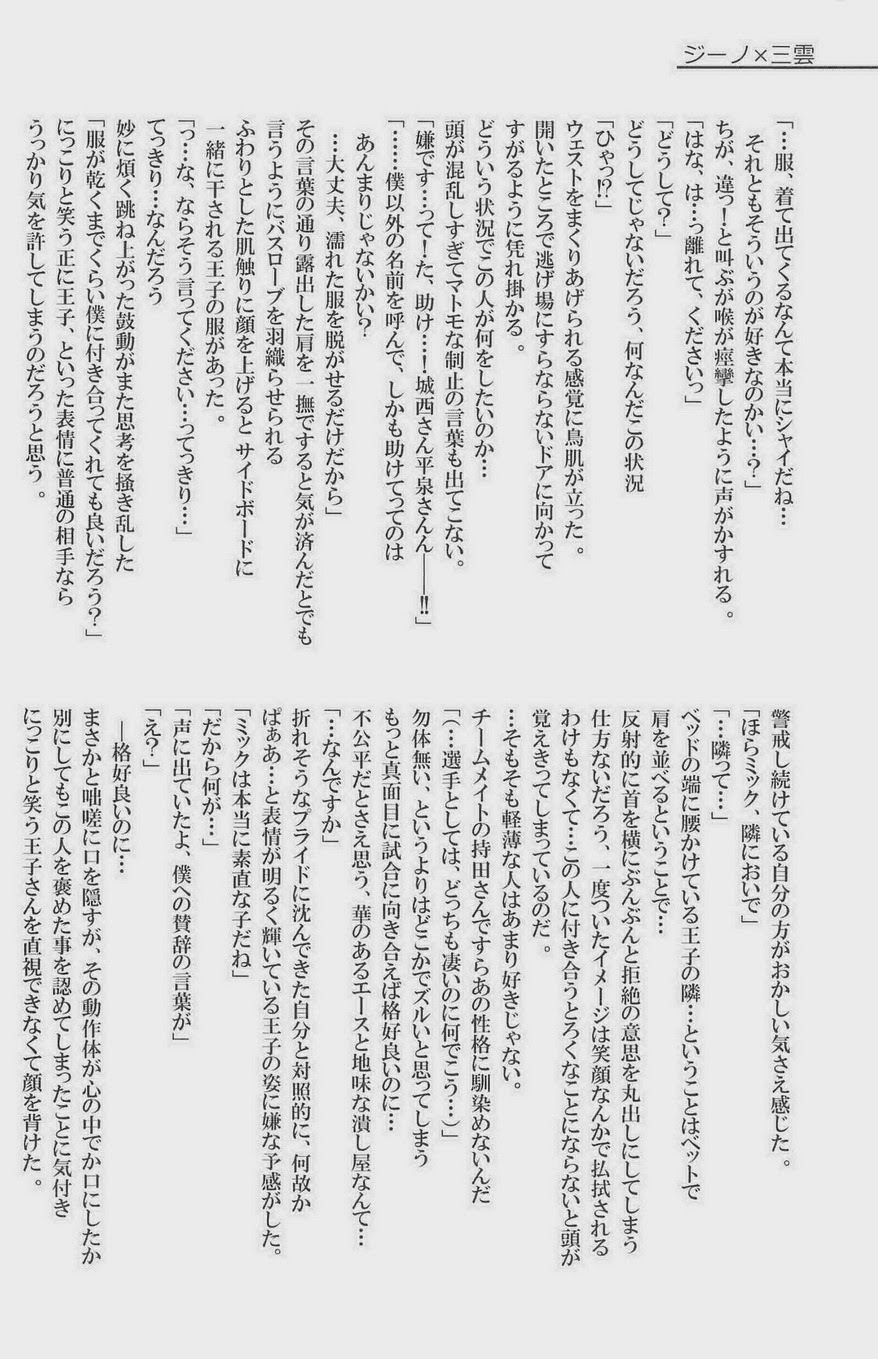 ジーノ×三雲
「…服、着て出てくるなんて本当にシャイだね…
それともそういうのが好きなのかい…?」
ちが、違っ!と叫ぶが喉が痙攣したように声がかすれる。
「はな、は…っ離れて、くださいっ」
「どうして?」
どうしてじゃないだろう、何なんだこの状況
「ひゃっ!?」
ウェストをまくりあげられる感覚に鳥肌が立った。
開いたところで逃げ場にすらならないドアに向かって
すがるように凭れ掛かる。
どういう状況でこの人が何をしたいのか…
頭が混乱しすぎてマトモな制止の言葉も出てこない。
「嫌です…って!た、助け…!城西さん平泉さんん――!!」
「……僕以外の名前を呼んで、しかも助けてってのは
あんまりじゃないかい?
…大丈夫、濡れた服を脱がせるだけだから」
その言葉の通り露出した肩を一撫ですると気が済んだとでも
言うようにバスローブを羽織らせられる
ふわりとした肌触りに顔を上げると サイドボードに
一緒に干される王子の服があった。
「っ…な、ならそう言ってください…ってっきり…」
てっきり…なんだろう
妙に煩く跳ね上がった鼓動がまた思考を掻き乱した
「服が乾くまでくらい僕に付き合ってくれても良いだろう?」
にっこりと笑う正に王子、といった表情に普通の相手なら
うっかり気を許してしまうのだろうと思う。
警戒し続けている自分の方がおかしい気さえ感じた。
「ほらミック、隣においで」
「…隣って…」
ベッドの端に腰かけている王子の隣…ということはベットで
肩を並べるということで…
反射的に首を横にぶんぶんと拒絶の意思を丸出しにしてしまう
仕方ないだろう、一度ついたイメージは笑顔なんかで払拭される
わけもなくて…この人に付き合うとろくなことにならないと頭が
覚えきってしまっているのだ。
…そもそも軽薄な人はあまり好きじゃない。
チームメイトの持田さんですらあの性格に馴染めないんだ
「(…選手としては、どっちも凄いのに何でこう…)」
勿体無い、というよりはどこかでズルいと思ってしまう
もっと真面目に試合に向き合えば格好良いのに…
不公平だとさえ思う、華のあるエースと地味な潰し屋なんて…
「…なんですか」
折れそうなプライドに沈んできた自分と対照的に、何故か
ぱぁあ…と表情が明るく輝いている王子の姿に嫌な予感がした。
「ミックは本当に素直な子だね」
「だから何が…」
「声に出ていたよ、僕への賛辞の言葉が」
「え?」
―格好良いのに…
まさかと咄嗟に口を隠すが、その動作体が心の中でか口にしたか
別にしてもこの人を褒めた事を認めてしまったことに気付き
にっこりと笑う王子さんを直視できなくて顔を背けた。